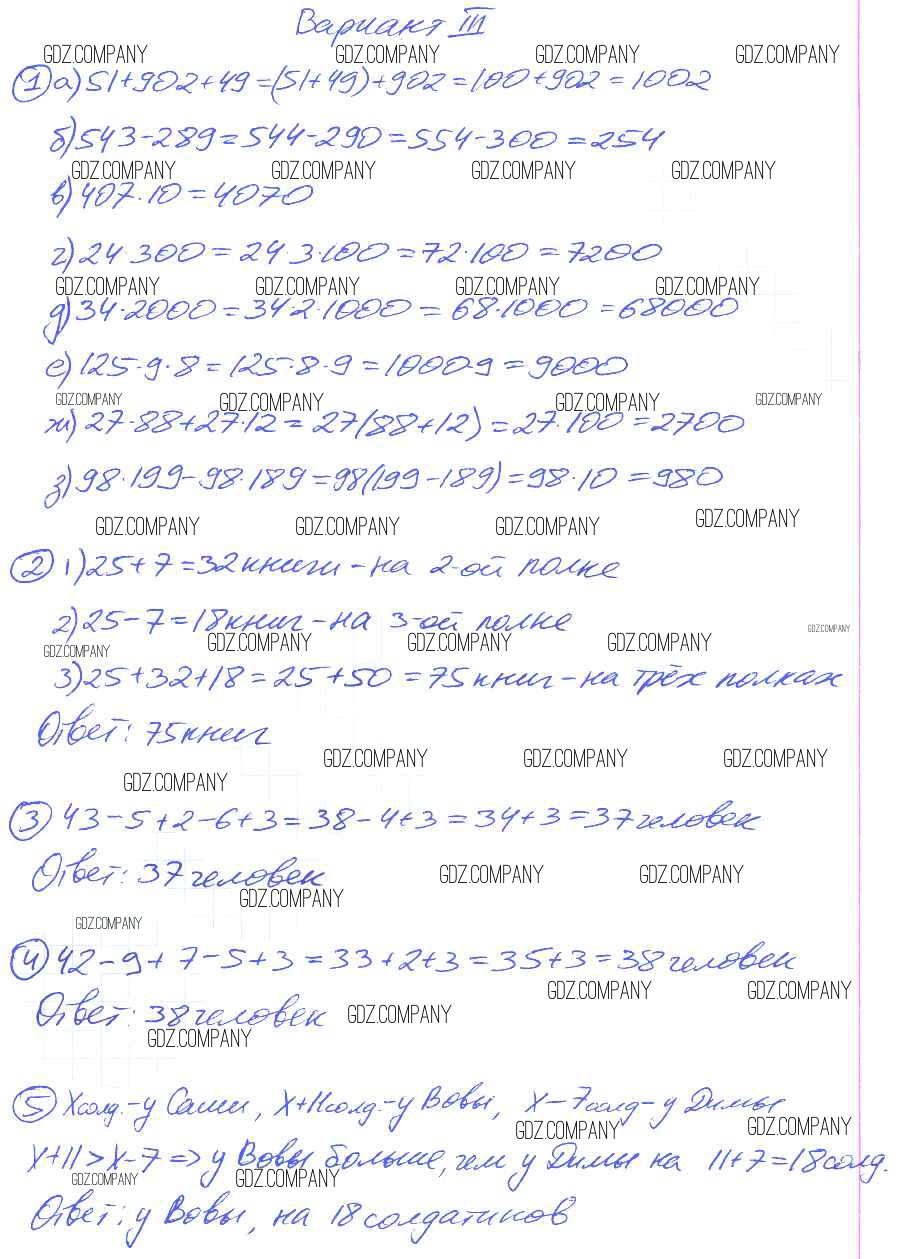 Вариант III
GDZ.COMPANY GDZ.COMPANY GDZ.COMPANY GDZ.COMPANY
1 а) 51+902+49=(51+49)+902=100+902=1002
б) 543-289=544-290=554-300=254
GDZ.COMPANY GDZ.COMPANY GDZ.COMPANY GDZ.COMPANY
в) 407·10=4070
г) 24 300=24·3·100=72·100=7200
GDZ.COMPANY GDZ.COMPANY GDZ.COMPANY GDZ.COMPANY
д) 34·2000=34·2·1000=68·1000=68000
е) 125·9·8=125·8·9=1000·9=9000
GDZ.COMPANY GDZ.COMPANY GDZ.COMPANY GDZ.COMPANY
ж) 27·88+27·12=27(88+12)=27·100=2700
з) 98·199-98·189=98(199-189)=98·10=980
GDZ.COMPANY GDZ.COMPANY GDZ.COMPANY GDZ.COMPANY
2 1) 25+7=32книги-на 2-ой полке
2) 25-7=18книг-на 3-ой полке
GDZ.COMPANY GDZ.COMPANY GDZ.COMPANY GDZ.COMPANY GDZ.COMPANY
3) 25+32+18=25+50=75книг-на трёх полках
Ответ: 75книг
GDZ.COMPANY GDZ.COMPANY GDZ.COMPANY GDZ.COMPANY
3 43-5+2-6+3=38-4+3=34+3=37человек
Ответ: 37человек
GDZ.COMPANY GDZ.COMPANY GDZ.COMPANY
GDZ.COMPANY
4 42-9+7-5+3=33+2+3=35+3=38человек
GDZ.COMPANY GDZ.COMPANY
Ответ: 38человек
GDZ.COMPANY GDZ.COMPANY
5 Xсолд.-у Саши, X+11солд.-у Вовы, X-7солд-у Димы
GDZ.COMPANY GDZ.COMPANY
X+11>X-7=>у Вовы больше, чем у Димы на 11+7=18солд.
GDZ.COMPANY GDZ.COMPANY
Ответ: у Вовы, на 18солдатиков